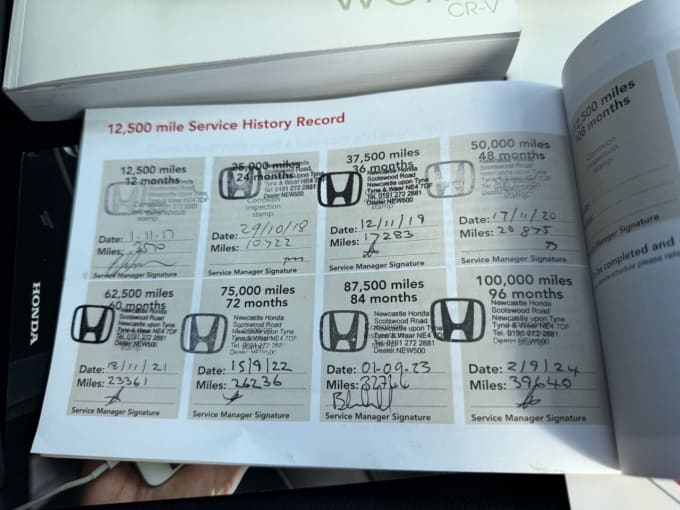 CR-V
12,500 mile Service History Record
12,500 miles
12 months
Date: 1.11.17
Miles: 3570
Service Manager Signature
25,000 miles
24 months
Tyne & Wear NE4 7DF
Tel. 0191 272 2881
Dealer NEW500
Date: 29/10/18
Miles: 10722
Service Manager Signature
37,500 miles
36 months
Newcastle Honda
Scotswood Road
Newcastle upon Tyne
Tyne & Wear NE4 7DF
Tel. 0191 272 2881
Dealer NEW500
Date: 12/11/19
Miles: 17283
Service Manager Signature
50,000 miles
48 months
Newcastle Honda
Scotswood Road
Newcastle upon Tyne
Tyne & Wear NE4 7DF
Date: 17/11/20
Miles: 20875
Service Manager Signature
62,500 miles
60 months
Newcastle Honda
Scotswood Road
Newcastle upon Tyne
Tyne & Wear NE4 7DF
Tel. 0191 272 2881
Dealer NEW500
Date: 18/11/21
Miles: 23361
Service Manager Signature
75,000 miles
72 months
Newcastle Honda
Scotswood Road
Newcastle upon Tyne
Tyne & Wear NE4 7DF
Tel. 0191 272 2881
Dealer NEW500
Date: 15/9/22
Miles: 26236
Service Manager Signature
87,500 miles
84 months
Newcastle Honda
Scotswood Road
Newcastle upon Tyne
Tyne & Wear NE4 7DF
Tel. 0191 272 2881
Dealer NEW500
Date: 01-09-23
Miles: 32766
Service Manager Signature
100,000 miles
96 months
Newcastle Honda
Scotswood Road
Newcastle upon Tyne
Tyne & Wear NE4 7DF
Tel. 0191 272 2881
Dealer NEW500
Date: 2/9/24
Miles: 39640
Service Manager Signature
HONDA
108 months
Service Manager Signature
be completed and
schedule please refer